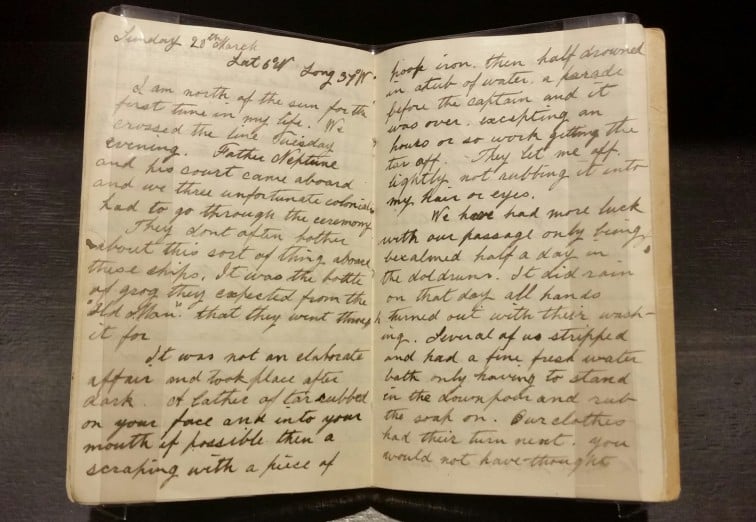 Sunday 20th March
Lat 6°N Long 37°W.
I am north of the sun for the
first time in my life. We
crossed the line Tuesday
evening. Father Neptune
and his court came aboard
and we three unfortunate colonials
had to go through the ceremony
They dont often bother
about this sort of thing aboard
these ships. It was the bottle
of grog they expected from the
"Old Man" that they went through
it for
It was not an elaborate
affair and took place after
dark. A lather of tar rubbed
on your face and into your
mouth if possible then a
scraping with a piece of
hoop iron. then half drowned
in a tub of water. a parade
before the captain and it
was over. excepting an
hours or so work getting the
tar off. They let me off
lightly not rubbing it into
my hair or eyes.
We have had more luck
with our passage only being
becalmed half a day in
the doldrums. It did rain
on that day all hands
turned out with their wash-
ing. Several of us stripped
and had a fine fresh water
bath only having to stand
in the downpour and rub
the soap on. Our clothes
had their turn next. you
would not have thought